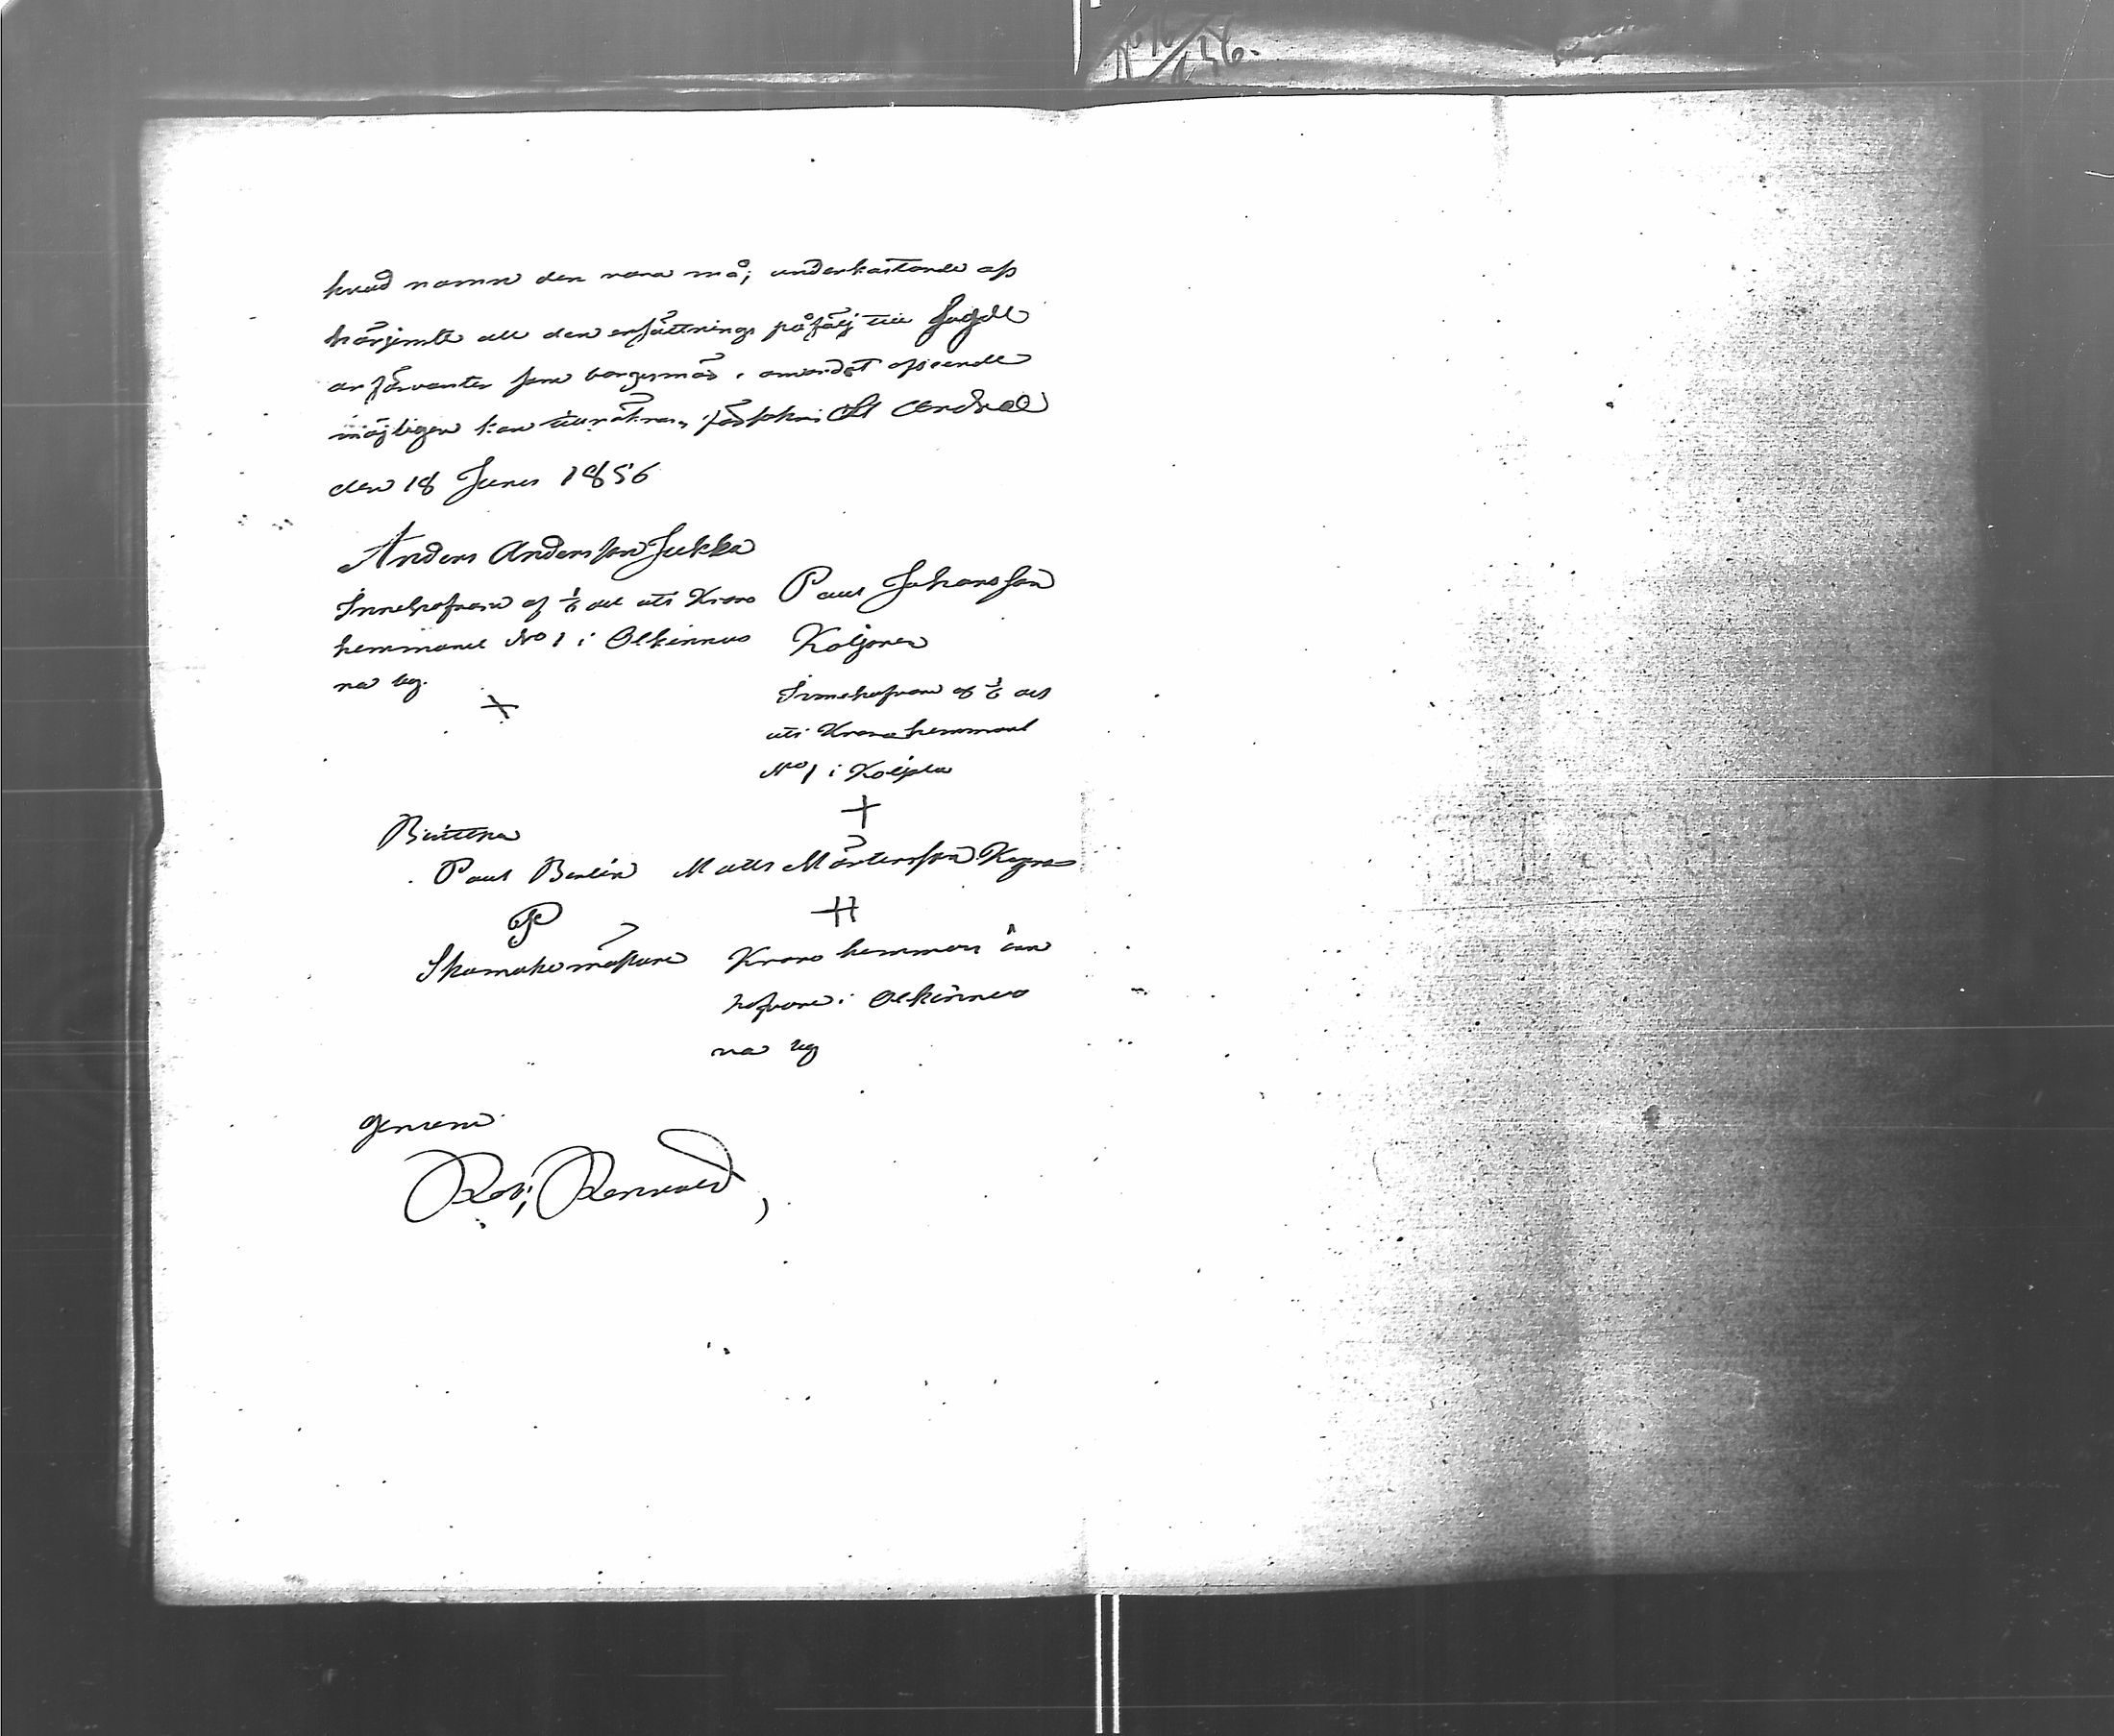 No 16/156.
hvad namn den vara må; underkastande oss
härjemte all den ersättnings påföljd till
arfsvanter som borgesmän i omordat afseende
möjligen kan tillräknas, försäkra i St Andreæ
den 18 Junii 1856
Anders Andersson Jukka
Innehafvare af 1/6 del uti Krono
hemmanet No 1 i Olkinuo
ra by.
+
Paul Johansson
Koljonen
Innehafvare af 1/6 del
uti Krono hemmanet
No 1 i Koljola
+
Bevittna
Paul Berlin
P
Skomakemästare
Matts Mårtensson
++
Krono hemmans inne
hafvare i Olkinuo
ra by
genom
Rob: